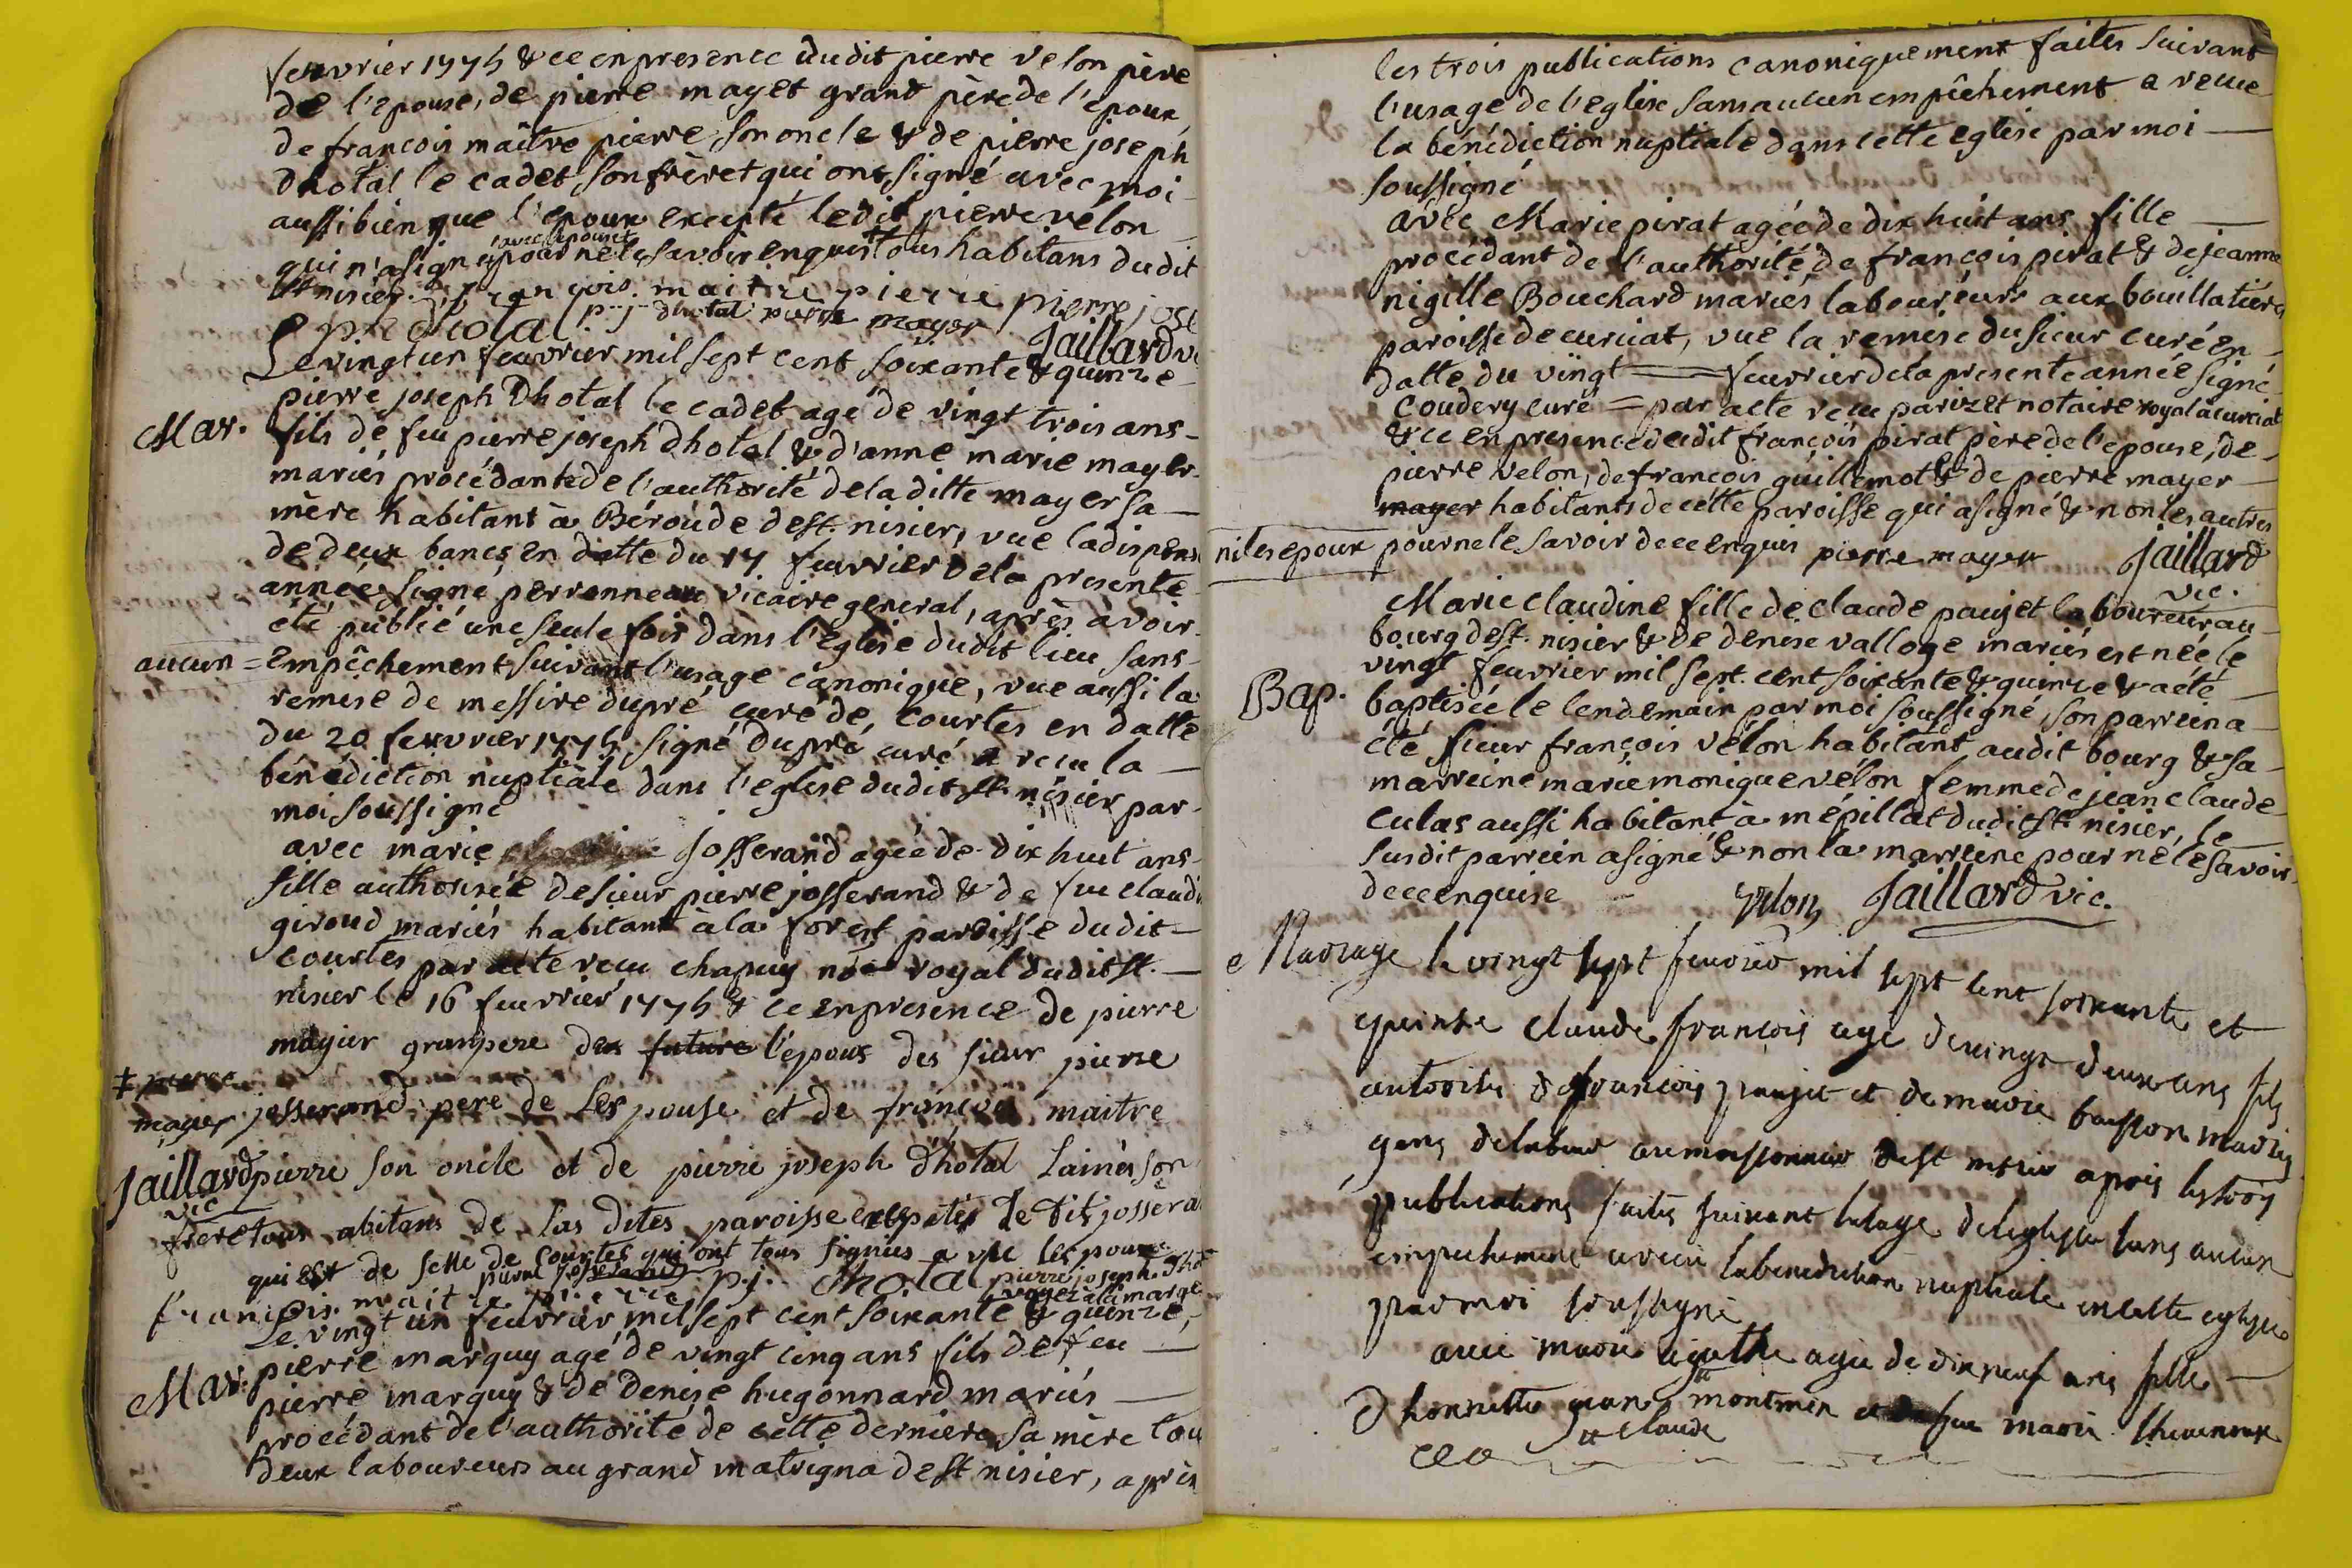 feuvrier 1775 & ce en presence dudit pierre velon père
de l'epouse, de pierre mayet grand père de l'epoux,
de françois maître pierre son oncle & de pierre joseph
Dhotal le cadet son frère & qui ont signé avec moi
aussi bien que l'epoux excepté ledit pierre velon
avec l'epouse
qui n'a signé pour ne le savoir enquis tous habitans dudit
St nisier. françois maitre pierre pierre jose
p j dhotal pierre mayer Jaillard vi
Le vingt un feuvrier mil sept cent soixante & quinze
pierre joseph Dhotal le cadet agé de vingt trois ans
Mar. fils de feu pierre joseph dhotal & d'anne marie mayer
mariés procédant de l'authorité de la ditte mayer sa
mère habitant à Béroude de st. nisier, vue la dispens
de deux bancs en datte du 17 feuvrier de la presente
année signé perronneau vicaire general, après avoir
été publié une seule fois dans l'eglise dudit lieu sans
aucun = empêchement suivant l'usage canonique, vue aussi la
remise de messire dupré curé de courtes en datte
du 20 feuvrier 1775 signé Dupré curé a recu la
bénédiction nuptiale dans l'eglise dudit st. nisier par
moi soussigné
avec marie josserand agée de dix huit ans
fille authorisée de sieur pierre josserand & de feu claudi
giroud mariés habitant à la forest paroisse dudit
courtes par acte recu chapuy nore royal dudit st.
nisier le 16 feuvrier 1775 & ce en presence de pierre
mayier granpere des future l'epous des sieur pierre
‡ pierre
mayer josserand pere de Lespouse et de françois maitre
Jaillard pierre son oncle et de pierre joseph d'hotal Lainés son
vic
frere tous abitans de las dites paroisse exsepetés le dit josseran
qui est de selle de Courtes qui ont tous signiés a vec les poux
pierre josserand p.j. dhotal pierre joseph dhot
françois maitre pierre mayer a la marge
Le vingt un feuvrier mil sept cent soixante & quinze,
Mar. pierre marguy agé de vingt cinq ans fils de feu
pierre marguy & de denise hugonnard mariés
procédant de l'authorité de cette dernière sa mère tou
deux laboureurs au grand matrigna de st nisier, après
les trois publications canoniquement faites suivant
l'usage de l'eglise sans aucun empêchement a recue
la bénédiction nuptiale dans cette eglise par moi
soussigné
avec Marie pirat agée de dix huit ans fille
procédant de l'authorité de françois pirat & de jeanne
nigille Bouchard mariés laboureurs aux bouillatières
paroisse de curciat, vue la remise du sieur curé en
datte du vingt = feuvrier de la presente année signé
coudery curé = par acte recu parizet notaire royal à curciat
& ce en presence dudit françois pirat père de l'epouse, de
pierre velon, de françois guillemot & de pierre mayer
mayer habitants de cette paroisse qui a signé & non les autres
ni les epoux pour ne le savoir de ce enquis pierre mayer Jaillard
vic.
Marie claudine fille de claude paujet laboureur au
bourg de st. nisier & de denise valloge mariés est née le
vingt feuvrier mil sept cent soixante & quinze & a été
Bap. baptisée le lendemain par moi soussigné, son parrein a
été sieur françois vélon habitant audit bourg & sa
marreine marie monique vélon femme de jean claude
culas aussi habitant à mépillat dudit st. nisier, le
susdit parrein a signé & non la marreine pour ne le savoir
de ce enquise velon Jaillard vic.
Mariage le vingt sept feuvrier mil sept cent soixante et
quinze claude françois agé de vingt deux ans fils
autorisé de françois paujet et de marie buisson mariés
gens de labeur au moissonnier de st nisier apres les trois
publications faites suivant lusage de leglise sans aucun
empechement a recu la benediction nuptiale en cette eglise
par moi soussigné
avec marie agathe agée de dix neuf ans fille
Dhonnette jean montmin et de feu marie
claude